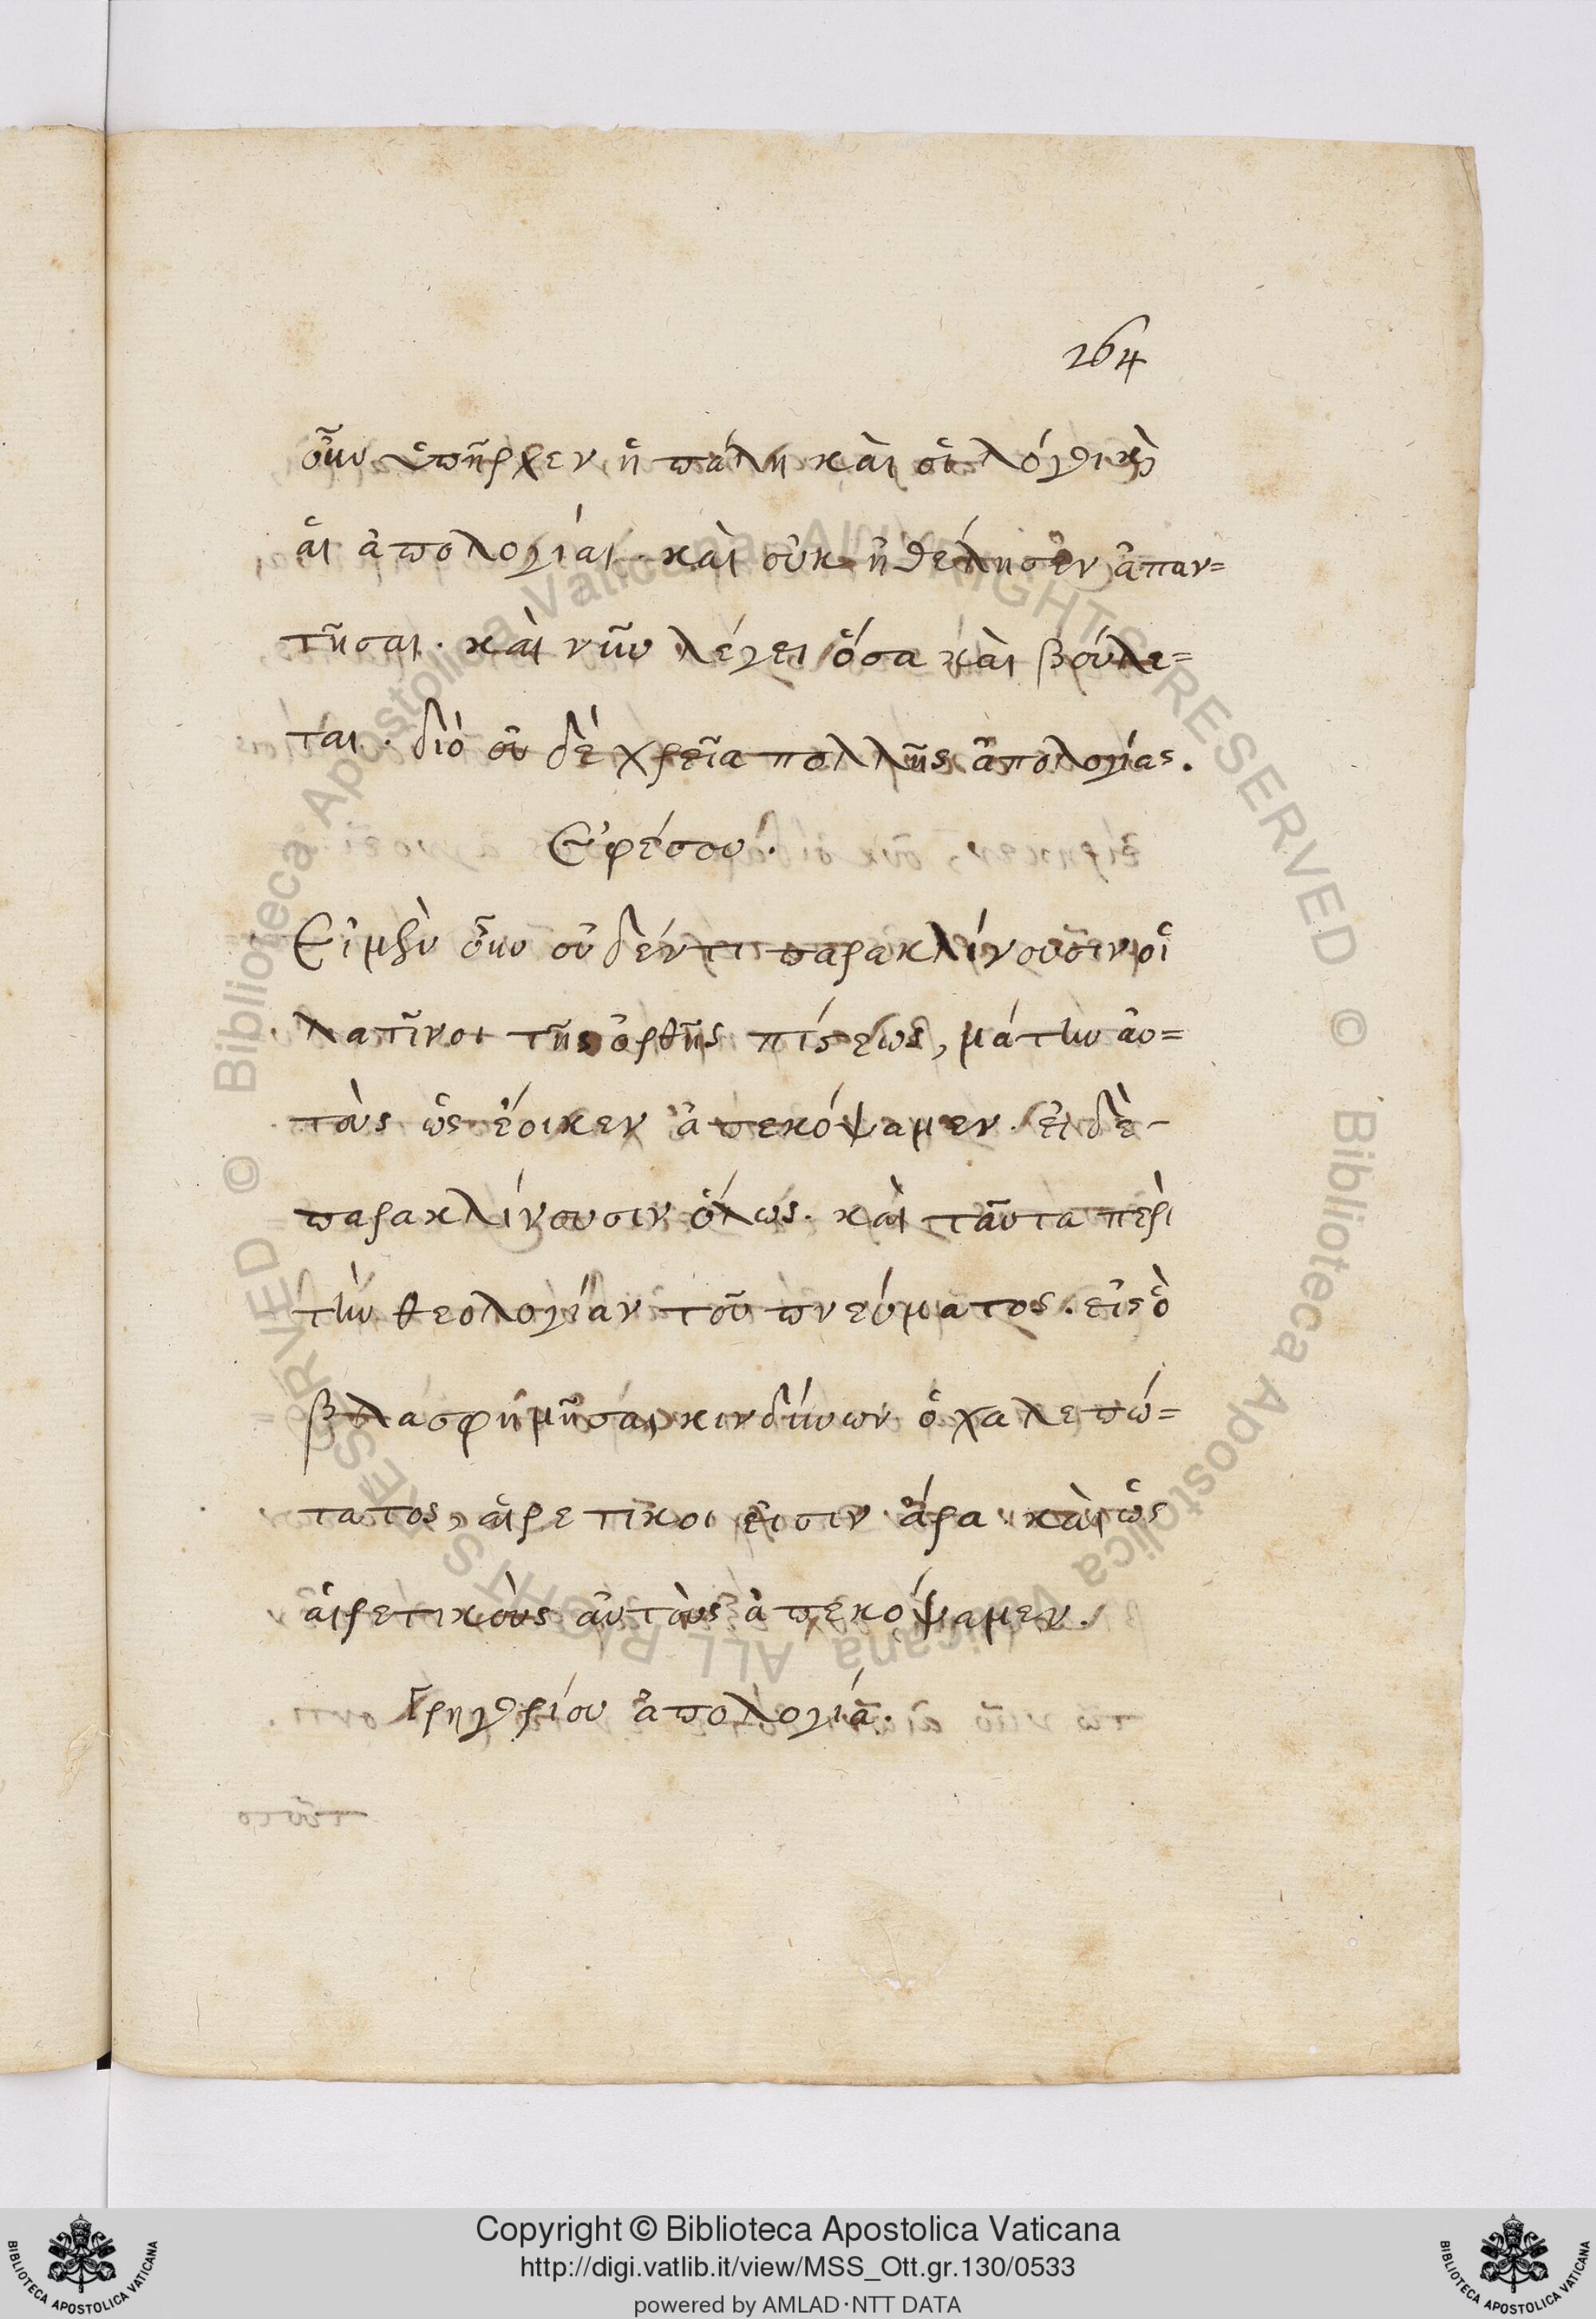 264
οὖν ὑπῆρχεν ἡ πάλη καὶ οἱ λόγοι καὶ
αἱ ἀπολογίαι. καὶ οὐκ ἠθέλησεν ἀπαν=
τῆσαι. καὶ νῦν λέγει ὅσα καὶ βούλε=
ται. διὸ οὐ δὲ χρεῖα πολλῆς ἀπολογίας.
Ἐφέσου.
Εἰ μὲν οὖν οὐδέν τι παρακλίνουσιν οἱ
λατῖνοι τῆς ὀρθῆς πίστεως, μάτην αὐ=
τοὺς ὡς ἔοικεν ἀπεκόψαμεν. εἰ δὲ-
παρακλίνουσιν ὅλως. καὶ ταῦτα περὶ
τὴν θεολογίαν τοῦ πνεύματος. εἰς ὃ
βλασφημῆσαι κινδύνων ὁ χαλεπώ=
τατος, αἱρετικοι εἰσιν ἄρα καὶ ὡς
αἱρετικοὺς αὐτοὺς ἀπεκόψαμεν.
Γρηγορίου ἀπολογιά.
Copyright © Biblioteca Apostolica Vaticana
http://digi.vatlib.it/view/MSS_Ott.gr.130/0533
powered by AMLAD·NTT DATA
BIBLIOTECA APOSTOLICA VATICANA
BIBLIOTECA APOSTOLICA VATICANA
© Biblioteca Apostolica Vaticana ALL RIGHTS RESERVED
© Biblioteca Apostolica Vaticana ALL RIGHTS RESERVED